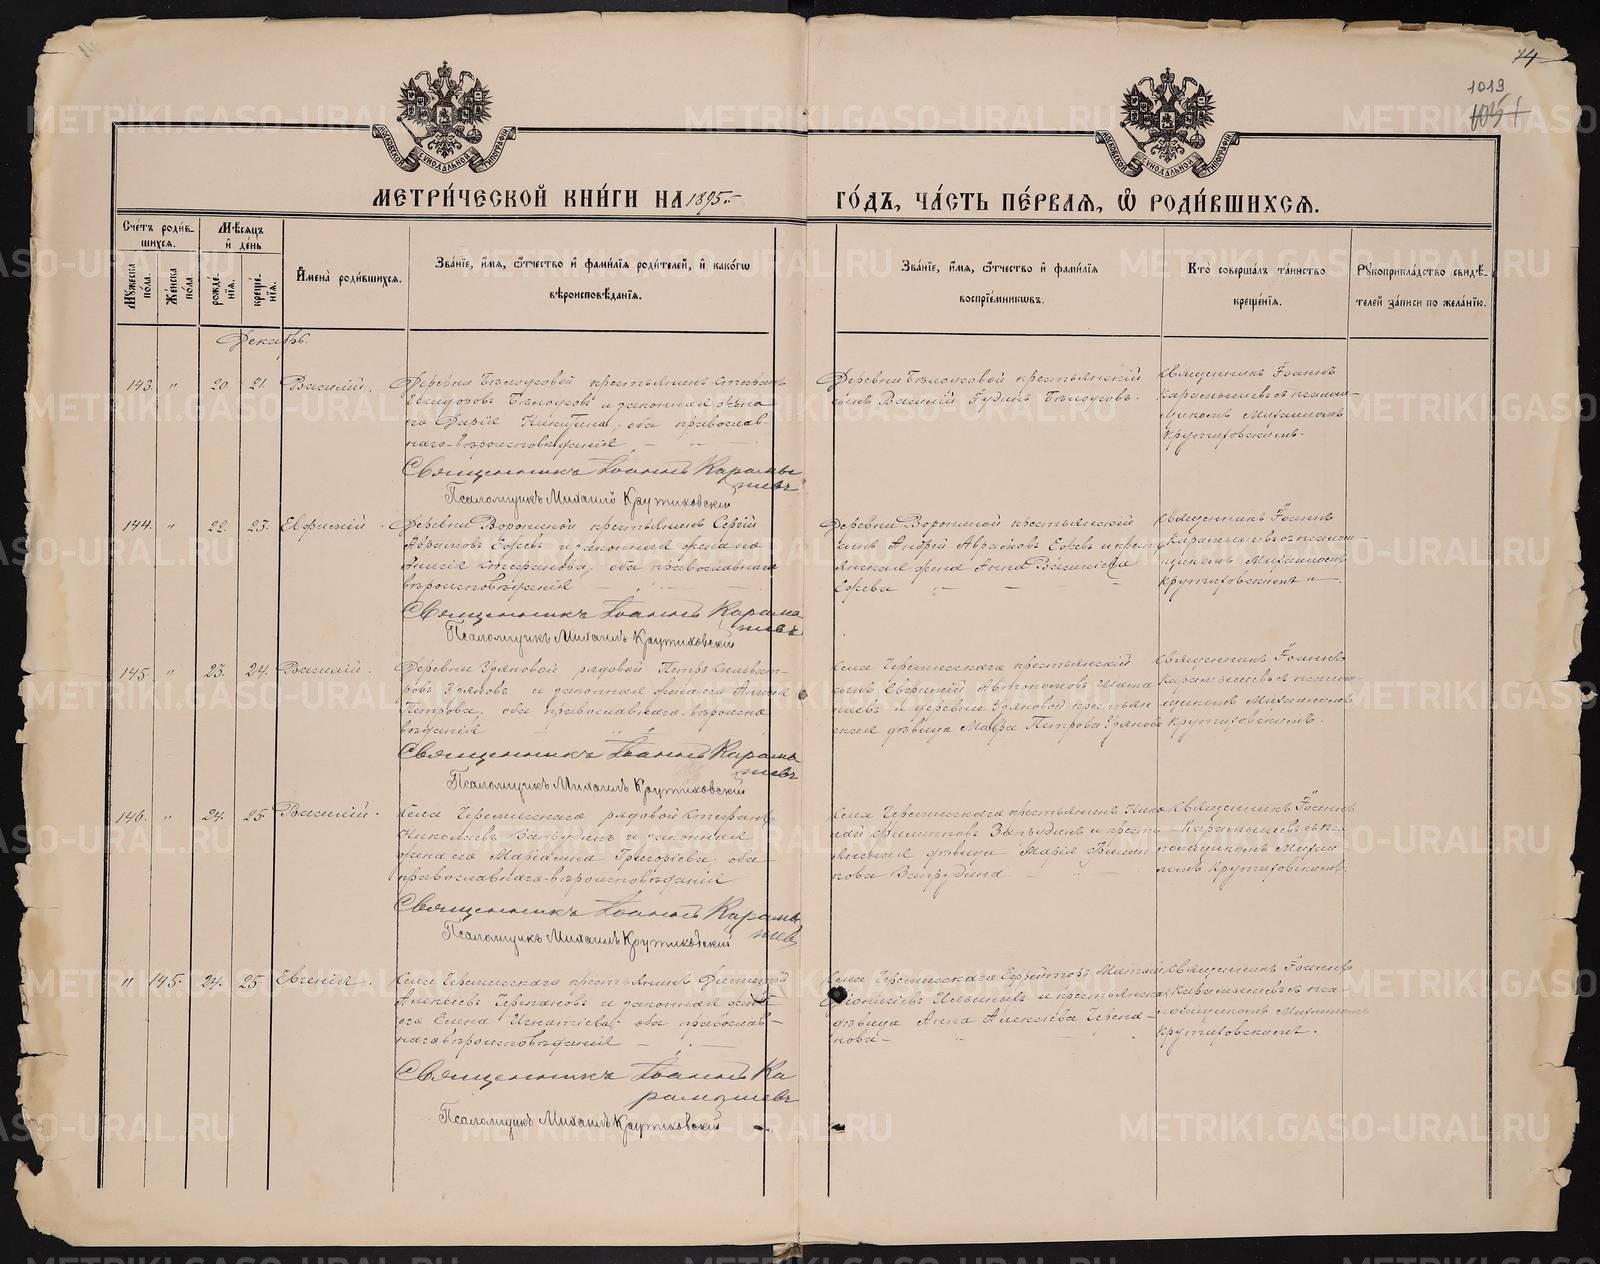 74
1013
МЕТРИ́ЧЕСКОЙ КНИ́ГИ НА 1895 ГО́ДЪ, ЧА́СТЬ ПЕ́РВАЯ, Ѡ РОДИ́ВШИХСЯ.
Сче́тъ роди́вшихся.
Мѣ́сяцъ и де́нь
Му́жеска по́ла.
Же́нска по́ла.
рожде́нія.
креще́нія.
Имена̀ роди́вшихся.
Зва́ніе, и́мя, ѻ́тчество и фами́лія роди́телей, и како́гѡ
вѣроисповѣ́данія.
Зва́ніе, и́мя, ѻ́тчество и фами́лія
воспріе́мниковъ.
Кто̀ соверша́лъ та́инство
креще́нія.
Рꙋкоприкла́дство свидѣ́телей за́писи по жела́нію.
Декабрь.
143. " 20. 21. Василій.
Деревни Бѣлоусовой крестьянинъ Стефанъ
Исидоровъ Бѣлоусовъ и законная жена
его Дарія Никитина, оба православнаго вѣроисповѣданія
Священникъ Іоаннъ Карамышевъ
Псаломщикъ Михаилъ Крутиховскій
Деревни Бѣлоусовой крестьянскій
сынъ Василій Бѣлоусовъ.
Священникъ Іоаннъ
Карамышевъ съ псаломщикомъ Михаиломъ
Крутиховскимъ.
144. " 22. 23. Евфисій.
Деревни Ворониной крестьянинъ Сергій
Абрамовъ Ежевъ и законная жена его
Анисія Стефанова, оба православнаго
вѣроисповѣданія
Священникъ Іоаннъ Карамышевъ
Псаломщикъ Михаилъ Крутиховскій
Деревни Ворониной крестьянскій
сынъ Андрей Абрамовъ Ежевъ и крестьянская жена Анна
Ежева
Священникъ Іоаннъ
Карамышевъ съ псаломщикомъ Михаиломъ
Крутиховскимъ
145. " 23. 24. Василій.
Деревни рядовой Петръ
и законная жена его
Петрова, оба православнаго вѣроисповѣданія
Священникъ Іоаннъ Карамышевъ
Псаломщикъ Михаилъ Крутиховскій
Села Черемисскаго крестьянскій
сынъ Евгений
и деревни крестьянская дѣвица Мавра Петрова
Священникъ Іоаннъ
Карамышевъ съ псаломщикомъ Михаиломъ
Крутиховскимъ.
146. " 24. 25. Василій.
Села Черемисскаго рядовой Стефанъ
Николаевъ Запрудинъ и законная
жена его Маріамна Григоріева, оба
православнаго вѣроисповѣданія
Священникъ Іоаннъ Карамышевъ
Псаломщикъ Михаилъ Крутиховскій
Села Черемисскаго крестьянинъ Николай Запрудинъ и крестьянская дѣвица Марія
Запрудина
Священникъ Іоаннъ
Карамышевъ съ псаломщикомъ Михаиломъ Крутиховскимъ.
" 145. 24. 25. Евгенія.
Села Черемисскаго крестьянинъ Димитрій
Алексѣевъ Черепановъ и законная жена
его Елена Игнатіева, оба православнаго вѣроисповѣданія
Священникъ Іоаннъ Карамышевъ
Псаломщикъ Михаилъ Крутиховскій
Села Черемисскаго Ефрейторъ
Діонисіевъ Ильиныхъ и крестьянская
дѣвица Анна Алексѣева Черепанова
Священникъ Іоаннъ
Карамышевъ съ псаломщикомъ Михаиломъ
Крутиховскимъ.
METRIKI.GASO-URAL.RU